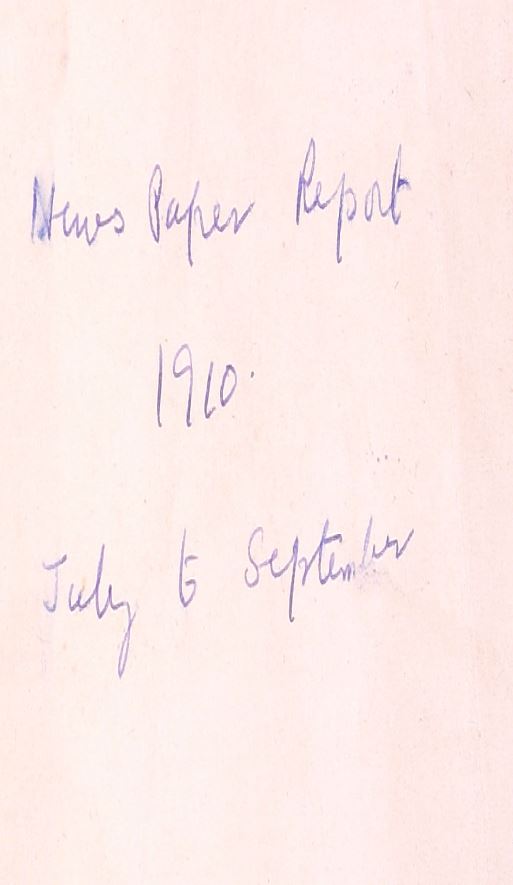 News Paper Report
1910.
July to September